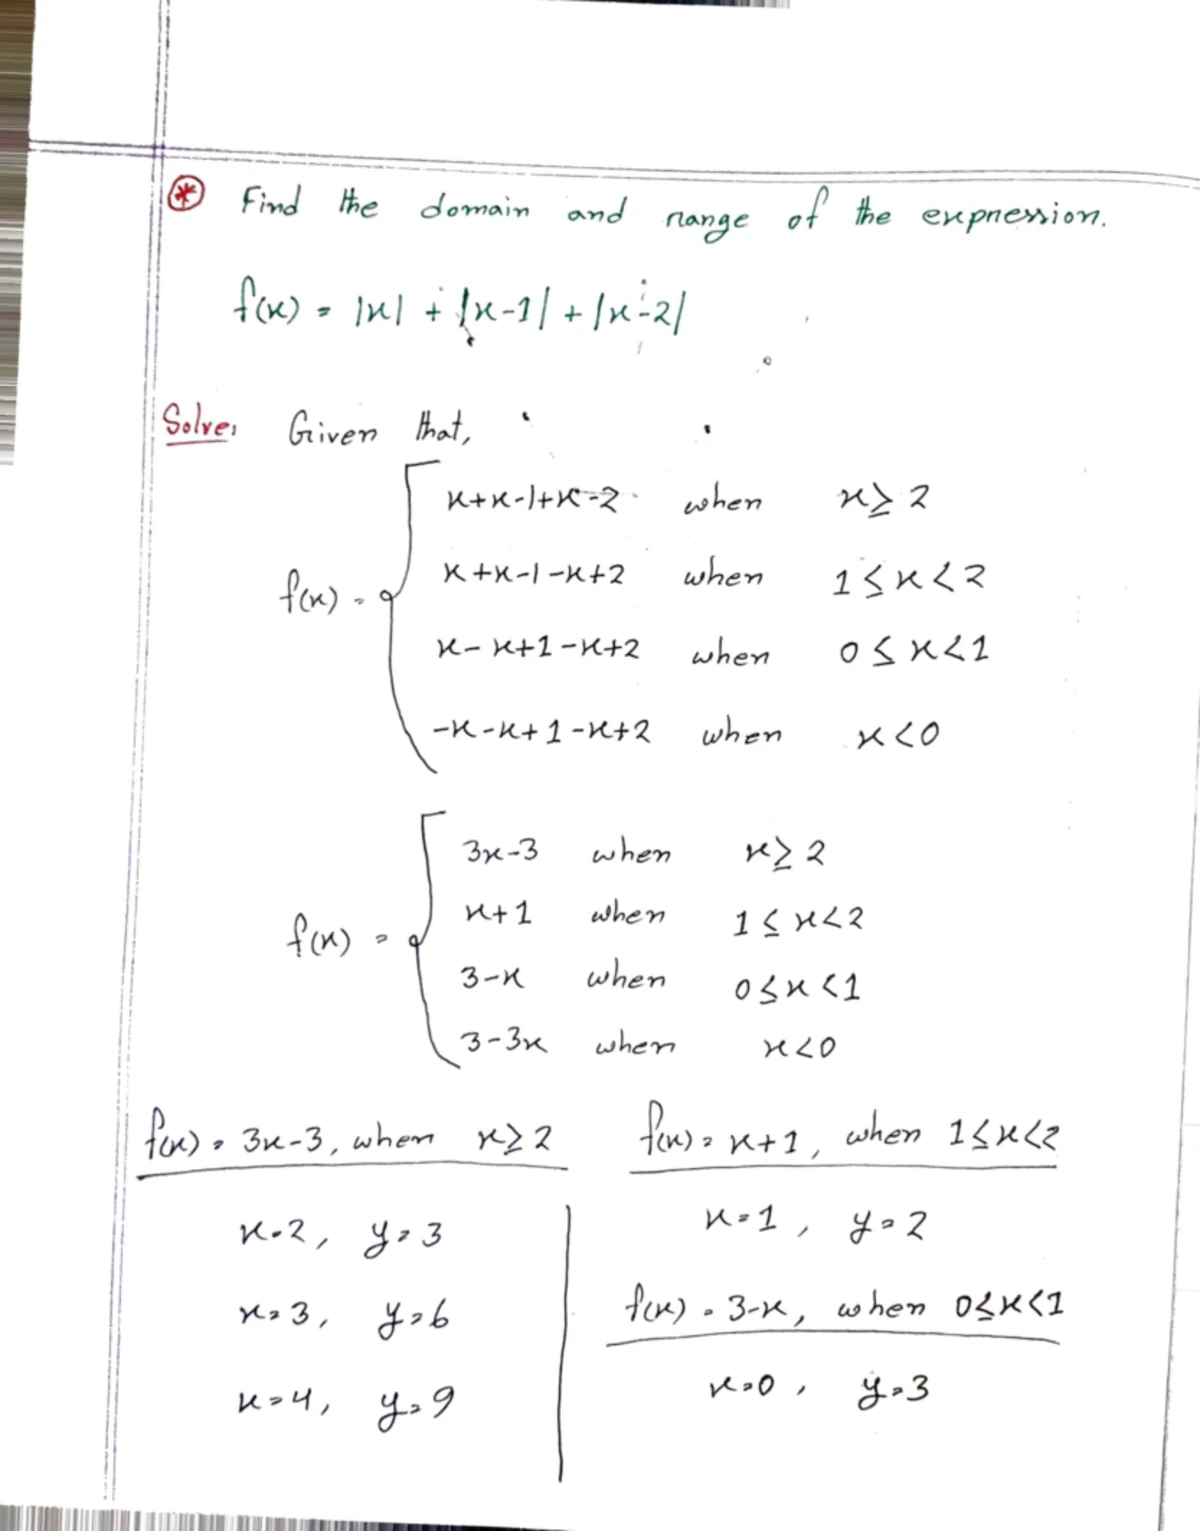 ⊛ Find the domain and range of the expression.
f(x) = |x| + |x-1| + |x-2|
Solve: Given that,
x+x-1+x-2 when x≥2
f(x) = x+x-1-x+2 when 1≤x<2
x-x+1-x+2 when 0≤x<1
-x-x+1-x+2 when x<0
3x-3 when x≥2
x+1 when 1≤x<2
f(x) =
3-x when 0≤x<1
3-3x when x<0
f(x) = 3x-3, when x≥2
x=2, y=3
x=3, y=6
x=4, y=9
f(x) = x+1, when 1≤x<2
x=1, y=2
f(x) = 3-x, when 0≤x<1
x=0, y=3